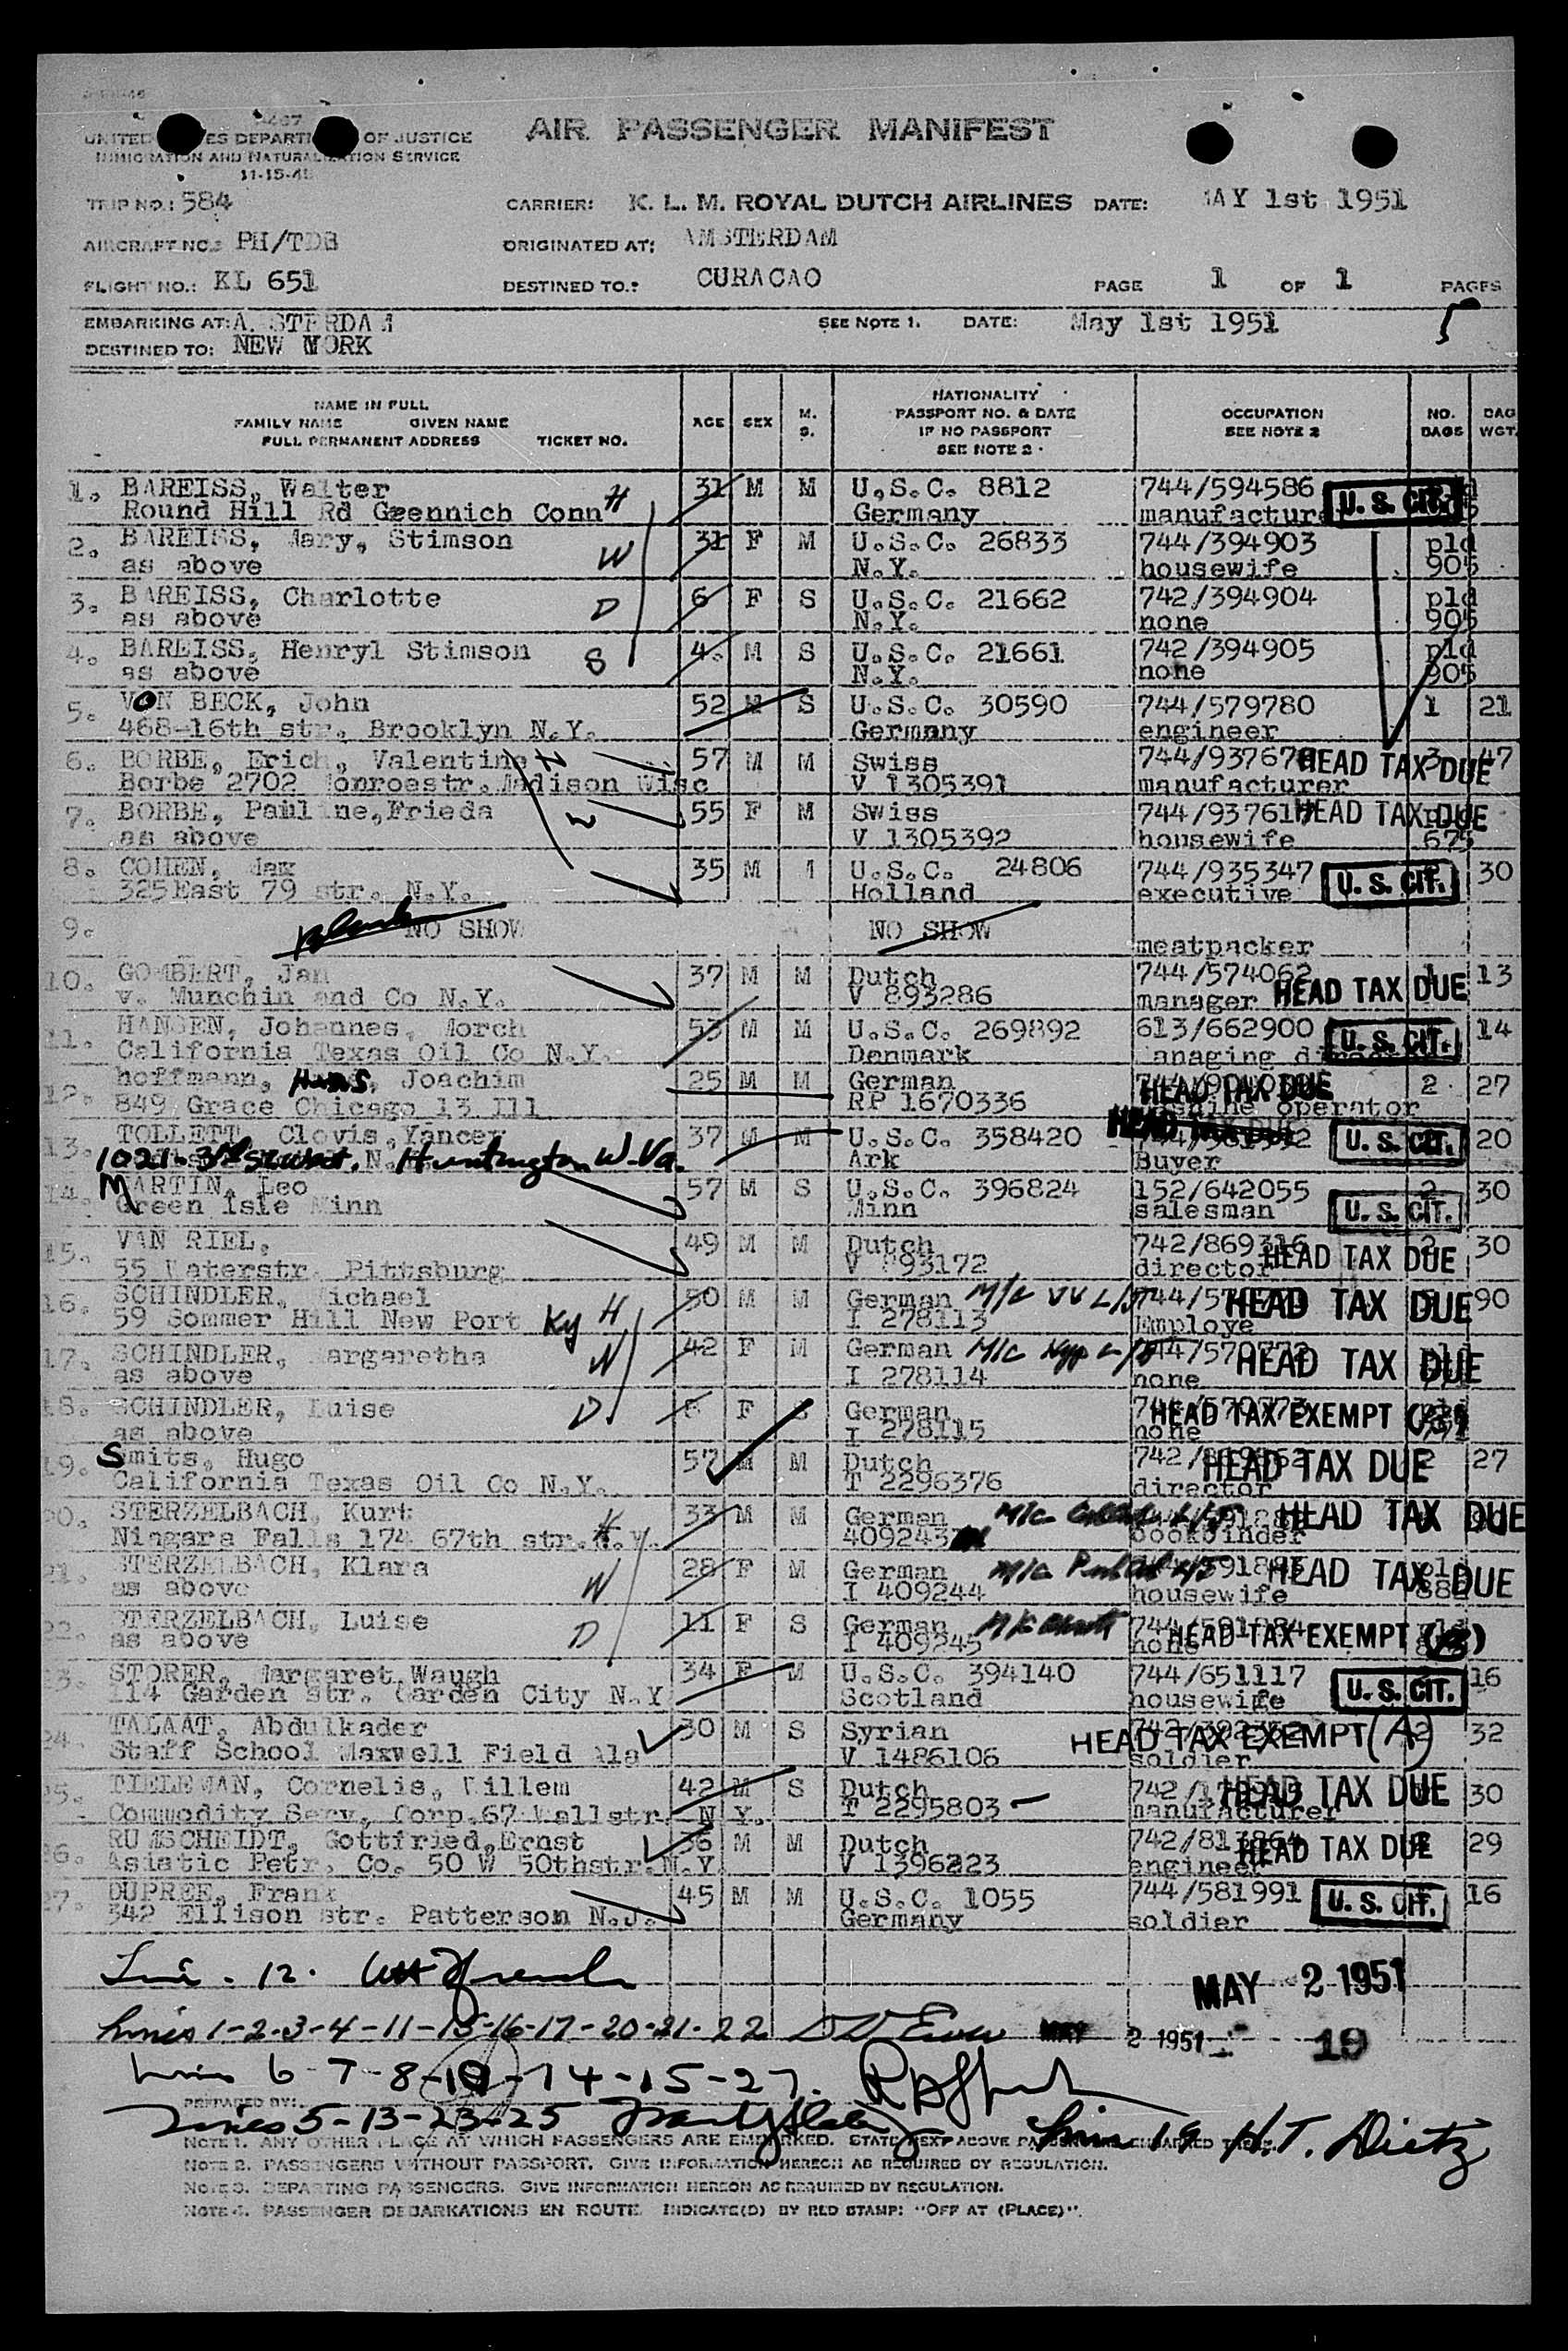 AIR PASSENGER MANIFEST
OF JUSTICE
IMMIGRATION AND NATURALIZATION SERVICE
TRIP NO.: 584 CARRIER: K. L. M. ROYAL DUTCH AIRLINES DATE: MAY 1st 1951
AIRCRAFT NO.: PH/TDB ORIGINATED AT: AMSTERDAM
FLIGHT NO.: KL 651 DESTINED TO.: CURACAO PAGE 1 OF 1 PAGES
EMBARKING AT: SEE NOTE 1. DATE: May 1st 1951
DESTINED TO: NEW
NAME IN FULL
FAMILY NAME GIVEN NAME
FULL PERMANENT ADDRESS TICKET NO. AGE SEX M. S. NATIONALITY PASSPORT NO. & DATE IF NO PASSPORT SEE NOTE 2 OCCUPATION SEE NOTE 2 NO. BAGS BAG WGT.
1. BAREISS, Walter H 31 M M U.S.C. 8812 744/594586 U. S. CIT.
Round Hill Rd Geennich Conn Germany
2. BAREISS, Mary, Stimson W 31 F M U.S.C. 26833 744/394903 pld
as above N.Y. housewife 905
3. BAREISS, Charlotte D 6 F S U.S.C. 21662 742/394904 pld
as above N.Y. none 905
4. BAREISS, Henryl Stimson S 4. M S U.S.C. 21661 742/394905 pld
as above N.Y. none 905
5. VON BECK, John 52 M S U.S.C. 30590 744/579780 1 21
468-16th str. Brooklyn N.Y. Germany engineer
6. BORBE, Erich, Valentine 57 M M Swiss HEAD TAX DUE 3 47
Borbe 2702 Monroestr. Madison Wisc V 1305391 manufacturer
7. BORBE, Pauline,Frieda 55 F M Swiss HEAD TAX DUE
as above V 1305392 housewife 675
8. COHEN, Max 35 M M U.S.C. 24806 744/935347 U. S. CIT. 30
325East 79 str. N.Y. Holland executive
9. NO SHOW NO SHOW
meatpacker
10. GOMBERT, Jan 37 M M Dutch 744/574062 1 13
v. Munchin and Co N.Y. V 893286 manager HEAD TAX DUE
11. HANSEN, Johannes, Morch 53 M M U.S.C. 269892 613/662900 U. S. CIT. 14
California Texas Oil Co N.Y. Denmark
12. hoffmann, Hans, Joachim 25 M M German HEAD TAX DUE 2 27
849 Grace Chicago 13 Ill RP 1670336 operator
13. TOLLETT, Clovis,Yancey 37 M M U.S.C. 358420 U. S. CIT. 20
1021-3rd Huntington W-Va. Ark Buyer
14. MARTIN, Leo 57 M S U.S.C. 396824 152/642055 2 30
Green Isle Minn Minn salesman U. S. CIT.
15. VAN RIEL, 49 M M Dutch 742/869316 30
55 Waterstr. Pittsburg V 893172 director HEAD TAX DUE
16. SCHINDLER, Michael H 50 M M German HEAD TAX DUE 90
59 Sommer Hill New Port Ky I 278113 Employe
17. SCHINDLER, Margaretha W 42 F M German HEAD TAX DUE
as above I 278114 none
18. SCHINDLER, Luise D F S German HEAD TAX EXEMPT
as above I 278115 none
19. Smits, Hugo 57 M M Dutch HEAD TAX DUE 2 27
California Texas Oil Co N.Y. T 2296376 director
20. STERZELBACH, Kurt 33 M M German HEAD TAX DUE
Niagara Falls 174 67th str. N.Y. bookbinder
21. STERZELBACH, Klara W 28 F M German HEAD TAX DUE
as above I 409244 housewife
22. STERZELBACH, Luise D 11 F S German HEAD TAX EXEMPT
as above I 409245 none
23. STORER, Margaret,Waugh 34 F M U.S.C. 394140 744/651117 16
114 Garden str. Garden City N.Y Scotland housewife U. S. CIT.
24. TALAAT, Abdulkader 30 M S Syrian HEAD TAX EXEMPT (A) 2 32
Staff School Maxwell Field Ala V 1486106 soldier
25. TIELEMAN, Cornelis, Willem 42 M S Dutch HEAD TAX DUE 30
Commodity Serv, Corp.67 Wallstr. N.Y. T 2295803 manufacturer
26. RUMSCHEIDT, Gottfried,Ernst 36 M M Dutch HEAD TAX DUE 29
Asiatic Petr. Co. 50 W 50thstr.N.Y V 1396223 engineer
27. DUPREE, Frank 45 M M U.S.C. 1055 744/581991 U. S. CIT. 16
342 Ellison str. Patterson N.J. Germany soldier
12. MAY 2 1951
Lines 1-2-3-4-11-15-16-17-20-21-22 MAY 2 1951 19
6-7-8-10-14-15-27.
PREPARED BY:
Lines 5-13-23-25 Line 19 H.T. Dietz
NOTE 1. ANY OTHER PLACE AT WHICH PASSENGERS ARE EMBARKED.
NOTE 2. PASSENGERS WITHOUT PASSPORT. GIVE INFORMATION HEREON AS REQUIRED BY REGULATION.
NOTE 3. DEPARTING PASSENGERS. GIVE INFORMATION HEREON AS REQUIRED BY REGULATION.
NOTE 4. PASSENGER DEBARKATIONS EN ROUTE. INDICATE(D) BY RED STAMP: "OFF AT (PLACE)".